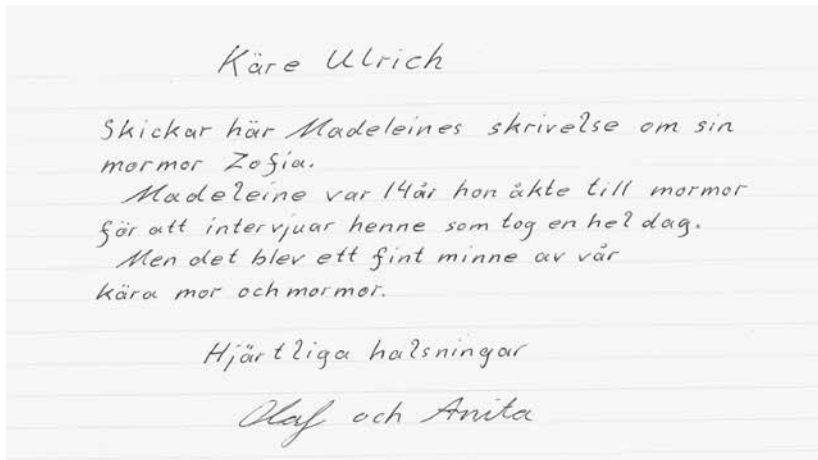 Käre Ulrich
Skickar här Madeleines skrivelse om sin
mormor Zofia.
Madeleine var 14år hon åkte till mormor
för att intervjuar henne som tog en hel dag.
Men det blev ett fint minne av vår
kära mor och mormor.
Hjärtliga halsningar
Olaf och Anita